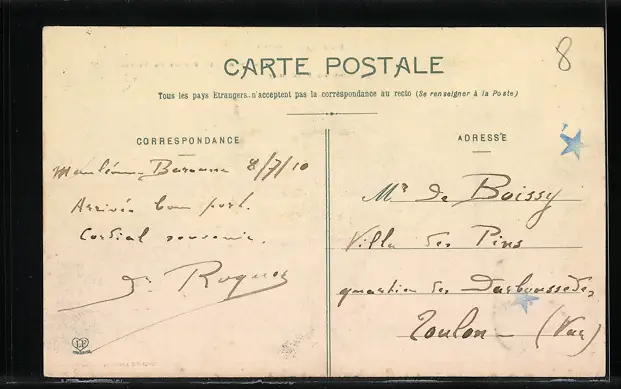 8
CARTE POSTALE
Tous les pays Etrangers n'acceptent pas la correspondance au recto (Se renseigner à la Poste)
CORRESPONDANCE
8/7/10
Arrivée bon port.
Cordial souvenir.
Dr Roques
LP
ADRESSE
Mr de Boissy
Villa des Pins
quartier des Darboussèdes
Toulon - (Var)